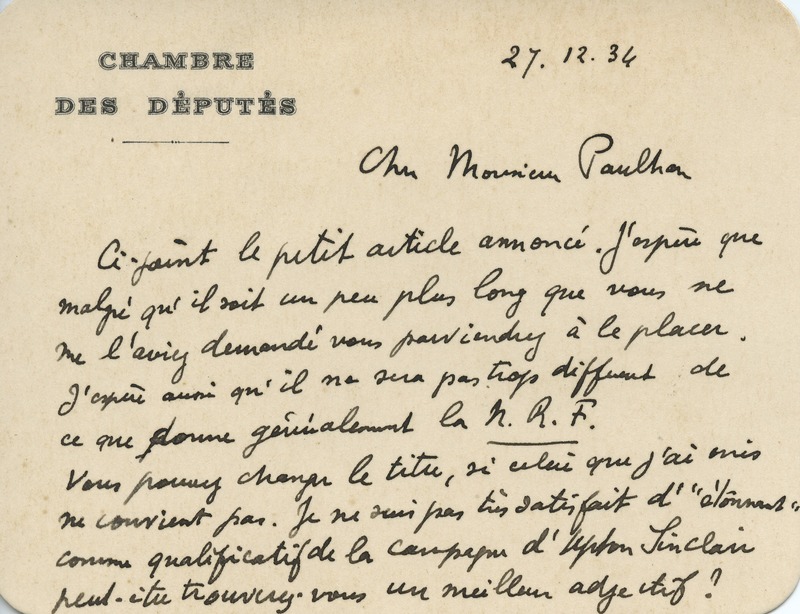 CHAMBRE
DES DÉPUTÉS
27. 12. 34
Cher Monsieur Paulhan
Ci-joint le petit article annoncé. J'espère que
malgré qu'il soit un peu plus long que vous ne
me l'aviez demandé vous parviendrez à le placer.
J'espère aussi qu'il ne sera pas trop différent de
ce que donne généralement la N. R. F.
Vous pouvez changer le titre, si celui que j'ai mis
ne convient pas. Je ne suis pas très satisfait d'"étonnant"
comme qualificatif de la campagne d'Upton Sinclair
peut-être trouverez-vous un meilleur adjectif ?